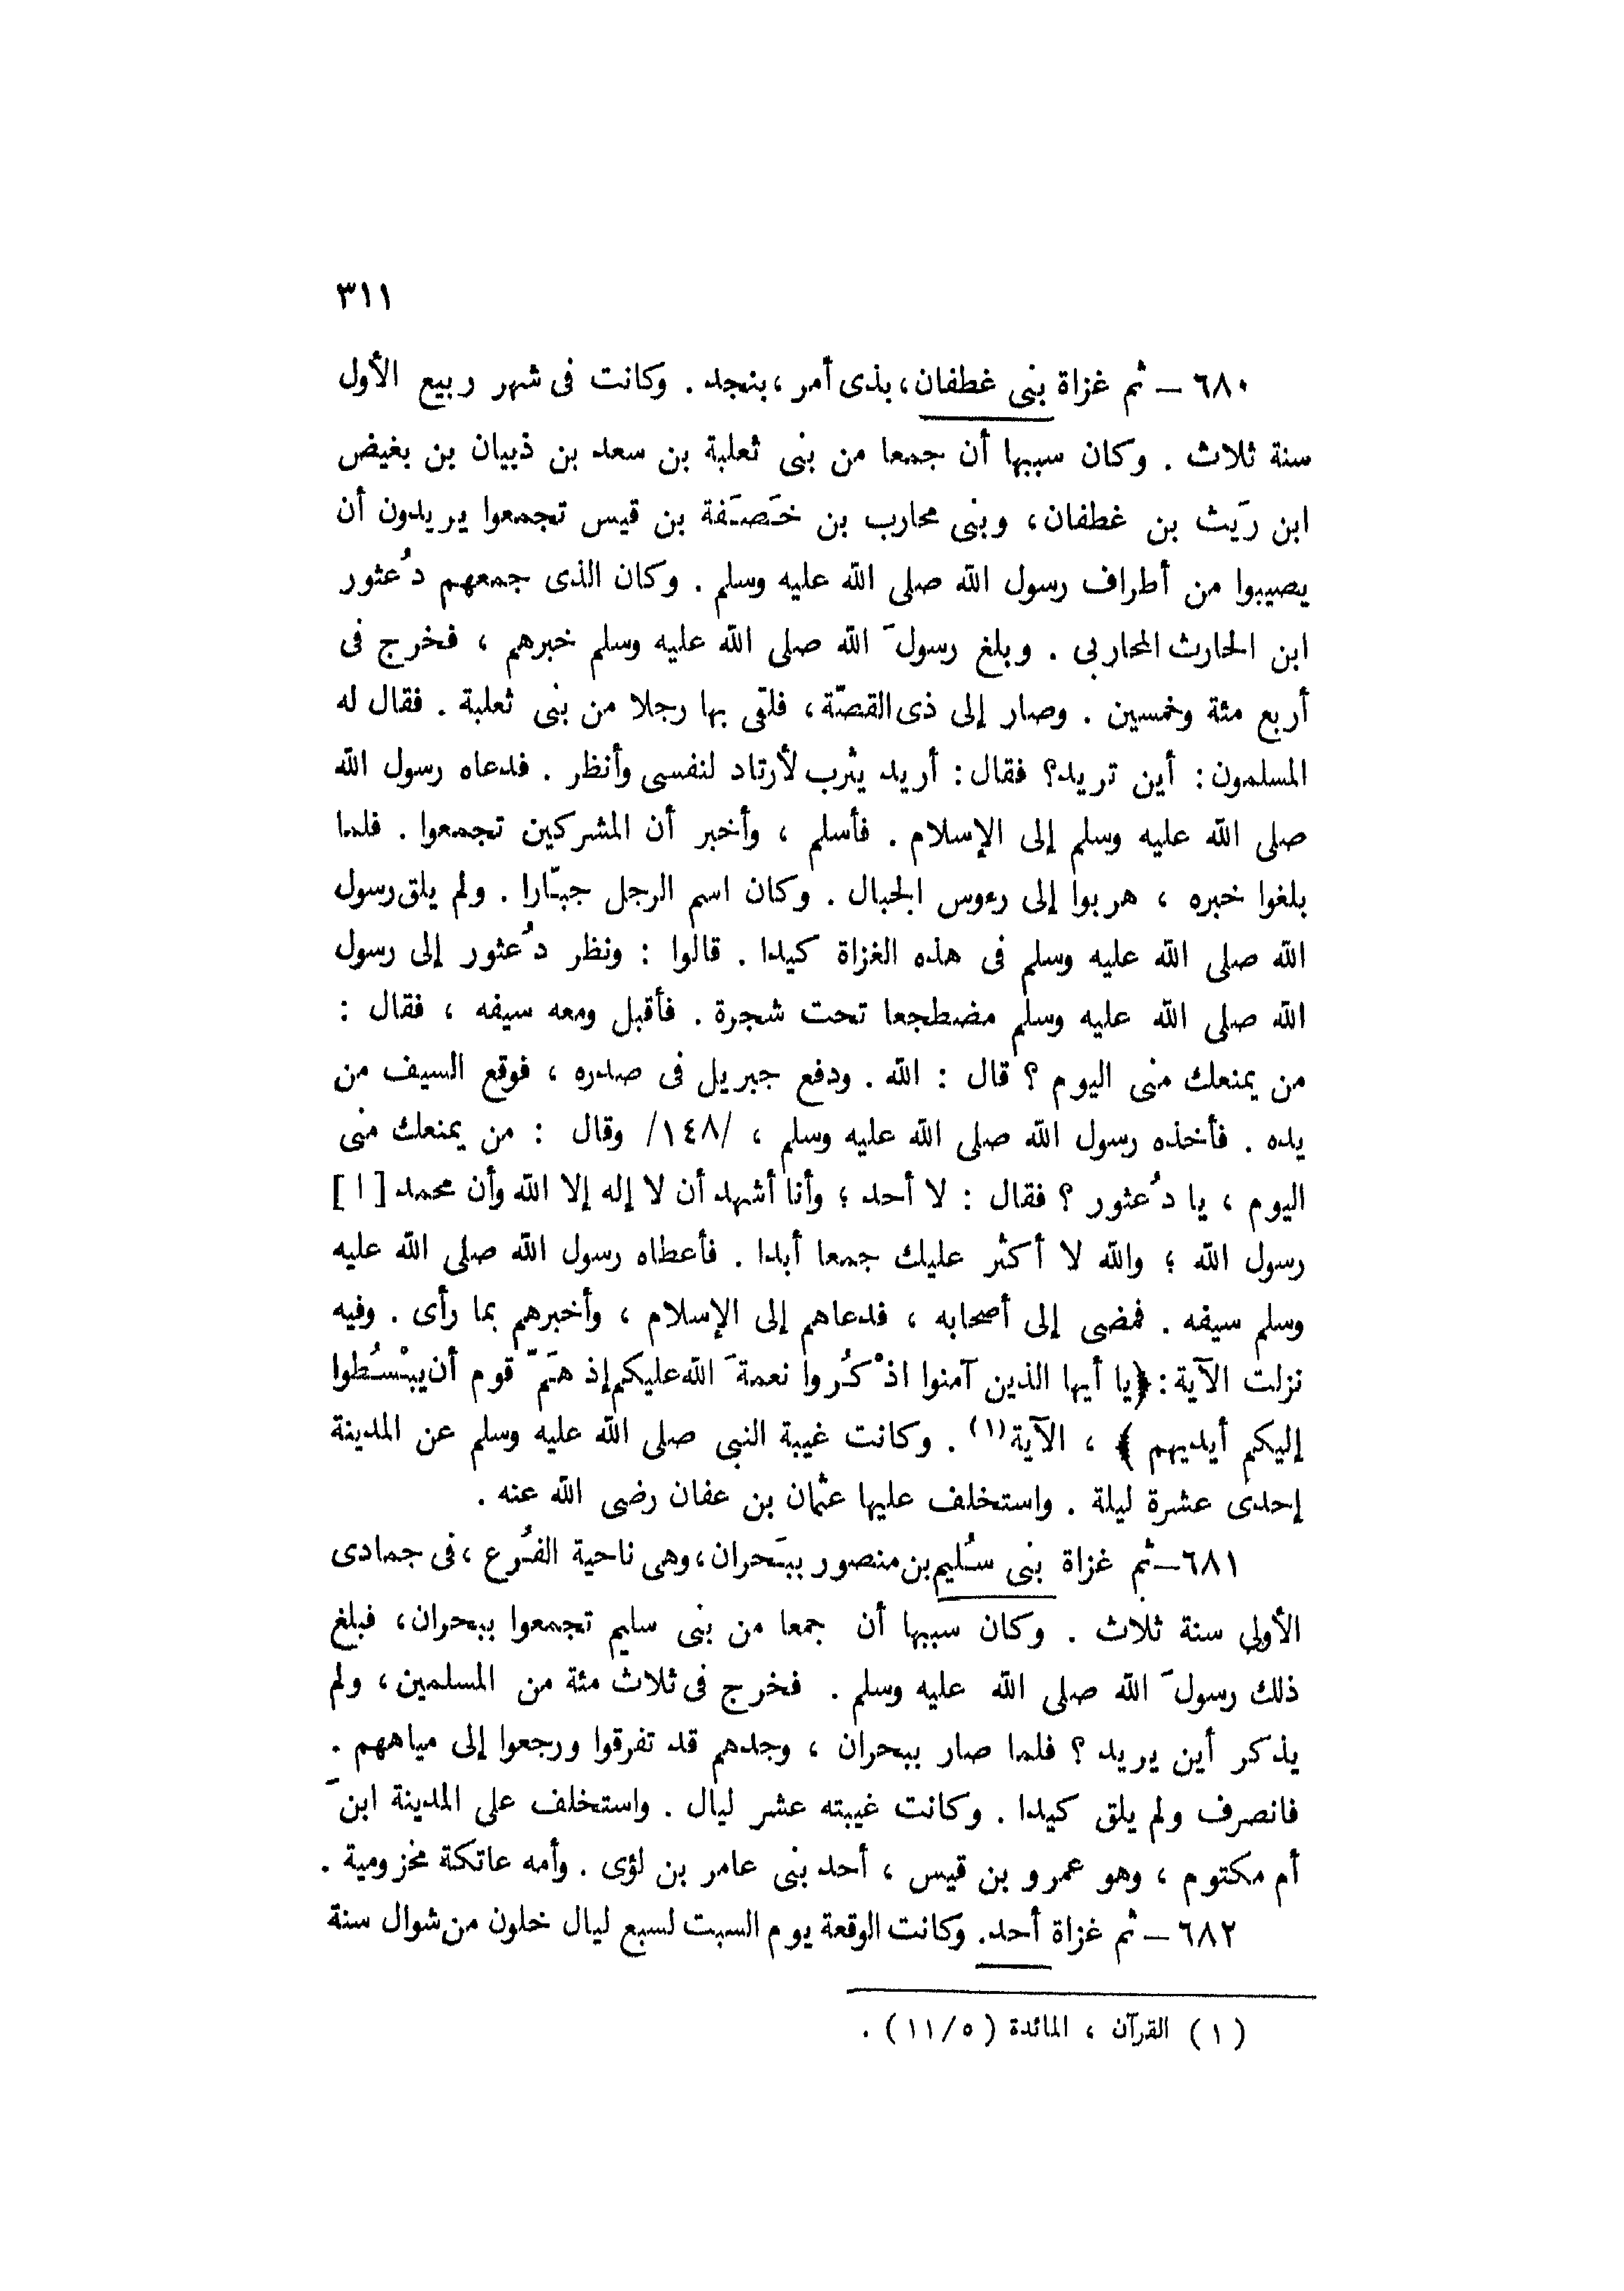 ٣١١
٦٨٠ – ثم غزاة بنى غطفان، بذى أمر، بنجد . وكانت فى شهر ربيع الأول
سنة ثلاث . وكان سببها أن جمعا من بنى ثعلبة بن سعد بن ذبيان بن بغيض
ابن رَيث بن غطفان، وبنى محارب بن خَصَفة بن قيس تجمعوا يريدون أن
يصيبوا من أطراف رسول الله صلى الله عليه وسلم . وكان الذى جمعهم دُعثور
ابن الحارث المحاربى . وبلغ رسولَ الله صلى الله عليه وسلم خبرهم ، فخرج فى
أربع مئة وخمسين . وصار إلى ذى القصّة، فلقى بها رجلا من بنى ثعلبة . فقال له
المسلمون: أين تريد؟ فقال: أريد يثرب لأرتاد لنفسى وأنظر . فدعاه رسول الله
صلى الله عليه وسلم إلى الإسلام . فأسلم ، وأخبر أن المشركين تجمعوا . فلما
بلغوا خبره ، هربوا إلى رءوس الجبال . وكان اسم الرجل جبّارا . ولم يلق رسول
الله صلى الله عليه وسلم فى هذه الغزاة كيدا . قالوا : ونظر دُعثور إلى رسول
الله صلى الله عليه وسلم مضطجعا تحت شجرة . فأقبل ومعه سيفه ، فقال :
من يمنعك منى اليوم ؟ قال : الله . ودفع جبريل فى صدره ، فوقع السيف من
يده . فأخذه رسول الله صلى الله عليه وسلم ، /١٤٨/ وقال : من يمنعك منى
اليوم ، يا دُعثور ؟ فقال : لا أحد ؛ وأنا أشهد أن لا إله إلا الله وأن محمد [ ا ]
رسول الله ؛ والله لا أكثر عليك جمعا أبدا . فأعطاه رسول الله صلى الله عليه
وسلم سيفه . فمضى إلى أصحابه ، فدعاهم إلى الإسلام ، وأخبرهم بما رأى . وفيه
نزلت الآية: ﴿يا أيها الذين آمنوا اذْكُروا نعمةَ الله عليكم إذ هَمّ قوم أن يبْسُطوا
إليكم أيديهم ﴾ ، الآية(١) . وكانت غيبة النبى صلى الله عليه وسلم عن المدينة
إحدى عشرة ليلة . واستخلف عليها عثمان بن عفان رضى الله عنه .
٦٨١ – ثم غزاة بنى سُليم بن منصور ببَحران، وهى ناحية الفُرع، فى جمادى
الأولى سنة ثلاث . وكان سببها أن جمعا من بنى سليم تجمعوا ببحران، فبلغ
ذلك رسولَ الله صلى الله عليه وسلم . فخرج فى ثلاث مئة من المسلمين، ولم
يذكر أين يريد ؟ فلما صار ببحران ، وجدهم قد تفرقوا ورجعوا إلى مياههم .
فانصرف ولم يلق كيدا . وكانت غيبته عشر ليال . واستخلف على المدينة ابنَ
أم مكتوم ، وهو عمرو بن قيس ، أحد بنى عامر بن لؤى . وأمه عاتكة مخزومية .
٦٨٢ – ثم غزاة أحد. وكانت الوقعة يوم السبت لسبع ليال خلون من شوال سنة
(١) القرآن ، المائدة (٥/١١) .